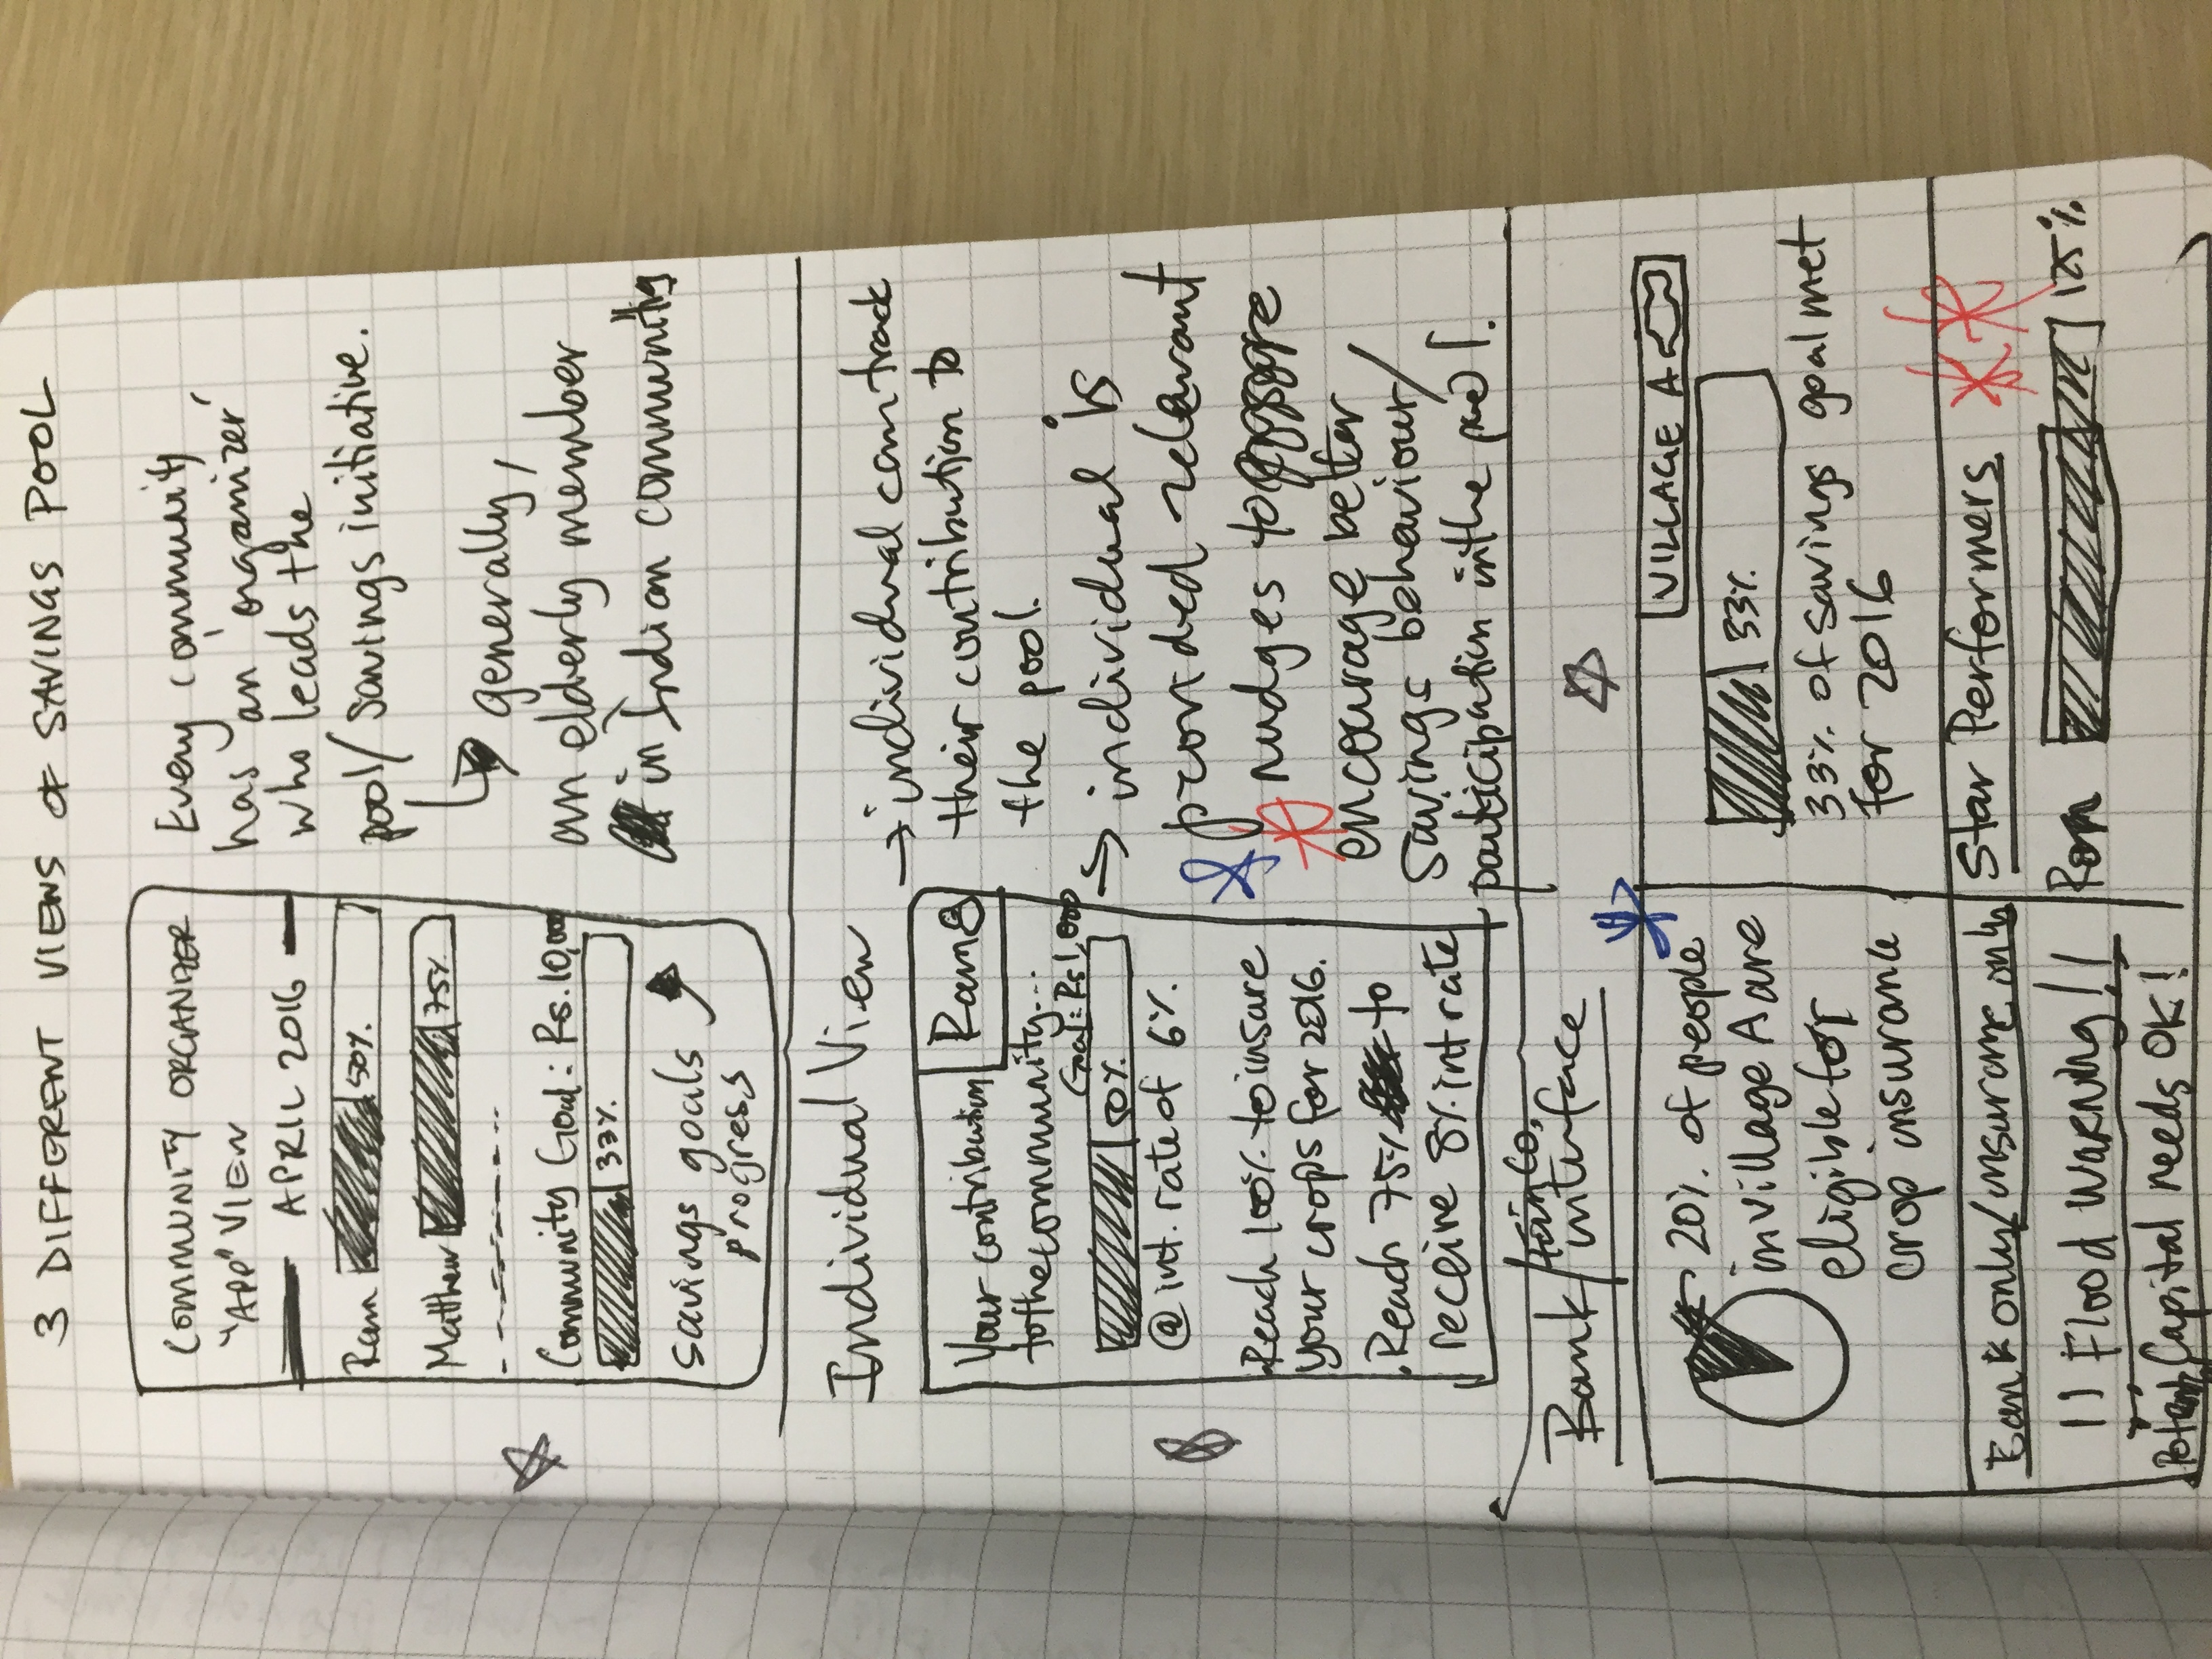 3 DIFFERENT VIEWS OF SAVINGS POOL
COMMUNITY ORGANIZER
"APP" VIEW
APRIL 2016
Ram 50%
Matthew 75%
Community Goal: Rs. 10,000
33%
savings goals
progress
Every community
has an 'organizer'
who leads the
pool/savings initiative.
generally,
an elderly member
in Indian communities
Individual View
Your contribution
Ram
to the community...
Goal: Rs 1,000
50%
@ int. rate of 6%.
.Reach 100% to insure
your crops for 2016.
.Reach 75% to
receive 8% int rate
→ individual can track
their contribution to
the pool.
→ individual is
provided relevant
nudges to
encourage better
savings behaviour/
participation in the pool.
Bank/fin Co.
interface
20% of people
in village A are
eligible for
crop insurance
VILLAGE A
33%
33% of savings goal met
for 2016
Bank only/insurance only
!! Flood Warning!!
Capital needs OK!
Star Performers
Ram 125%